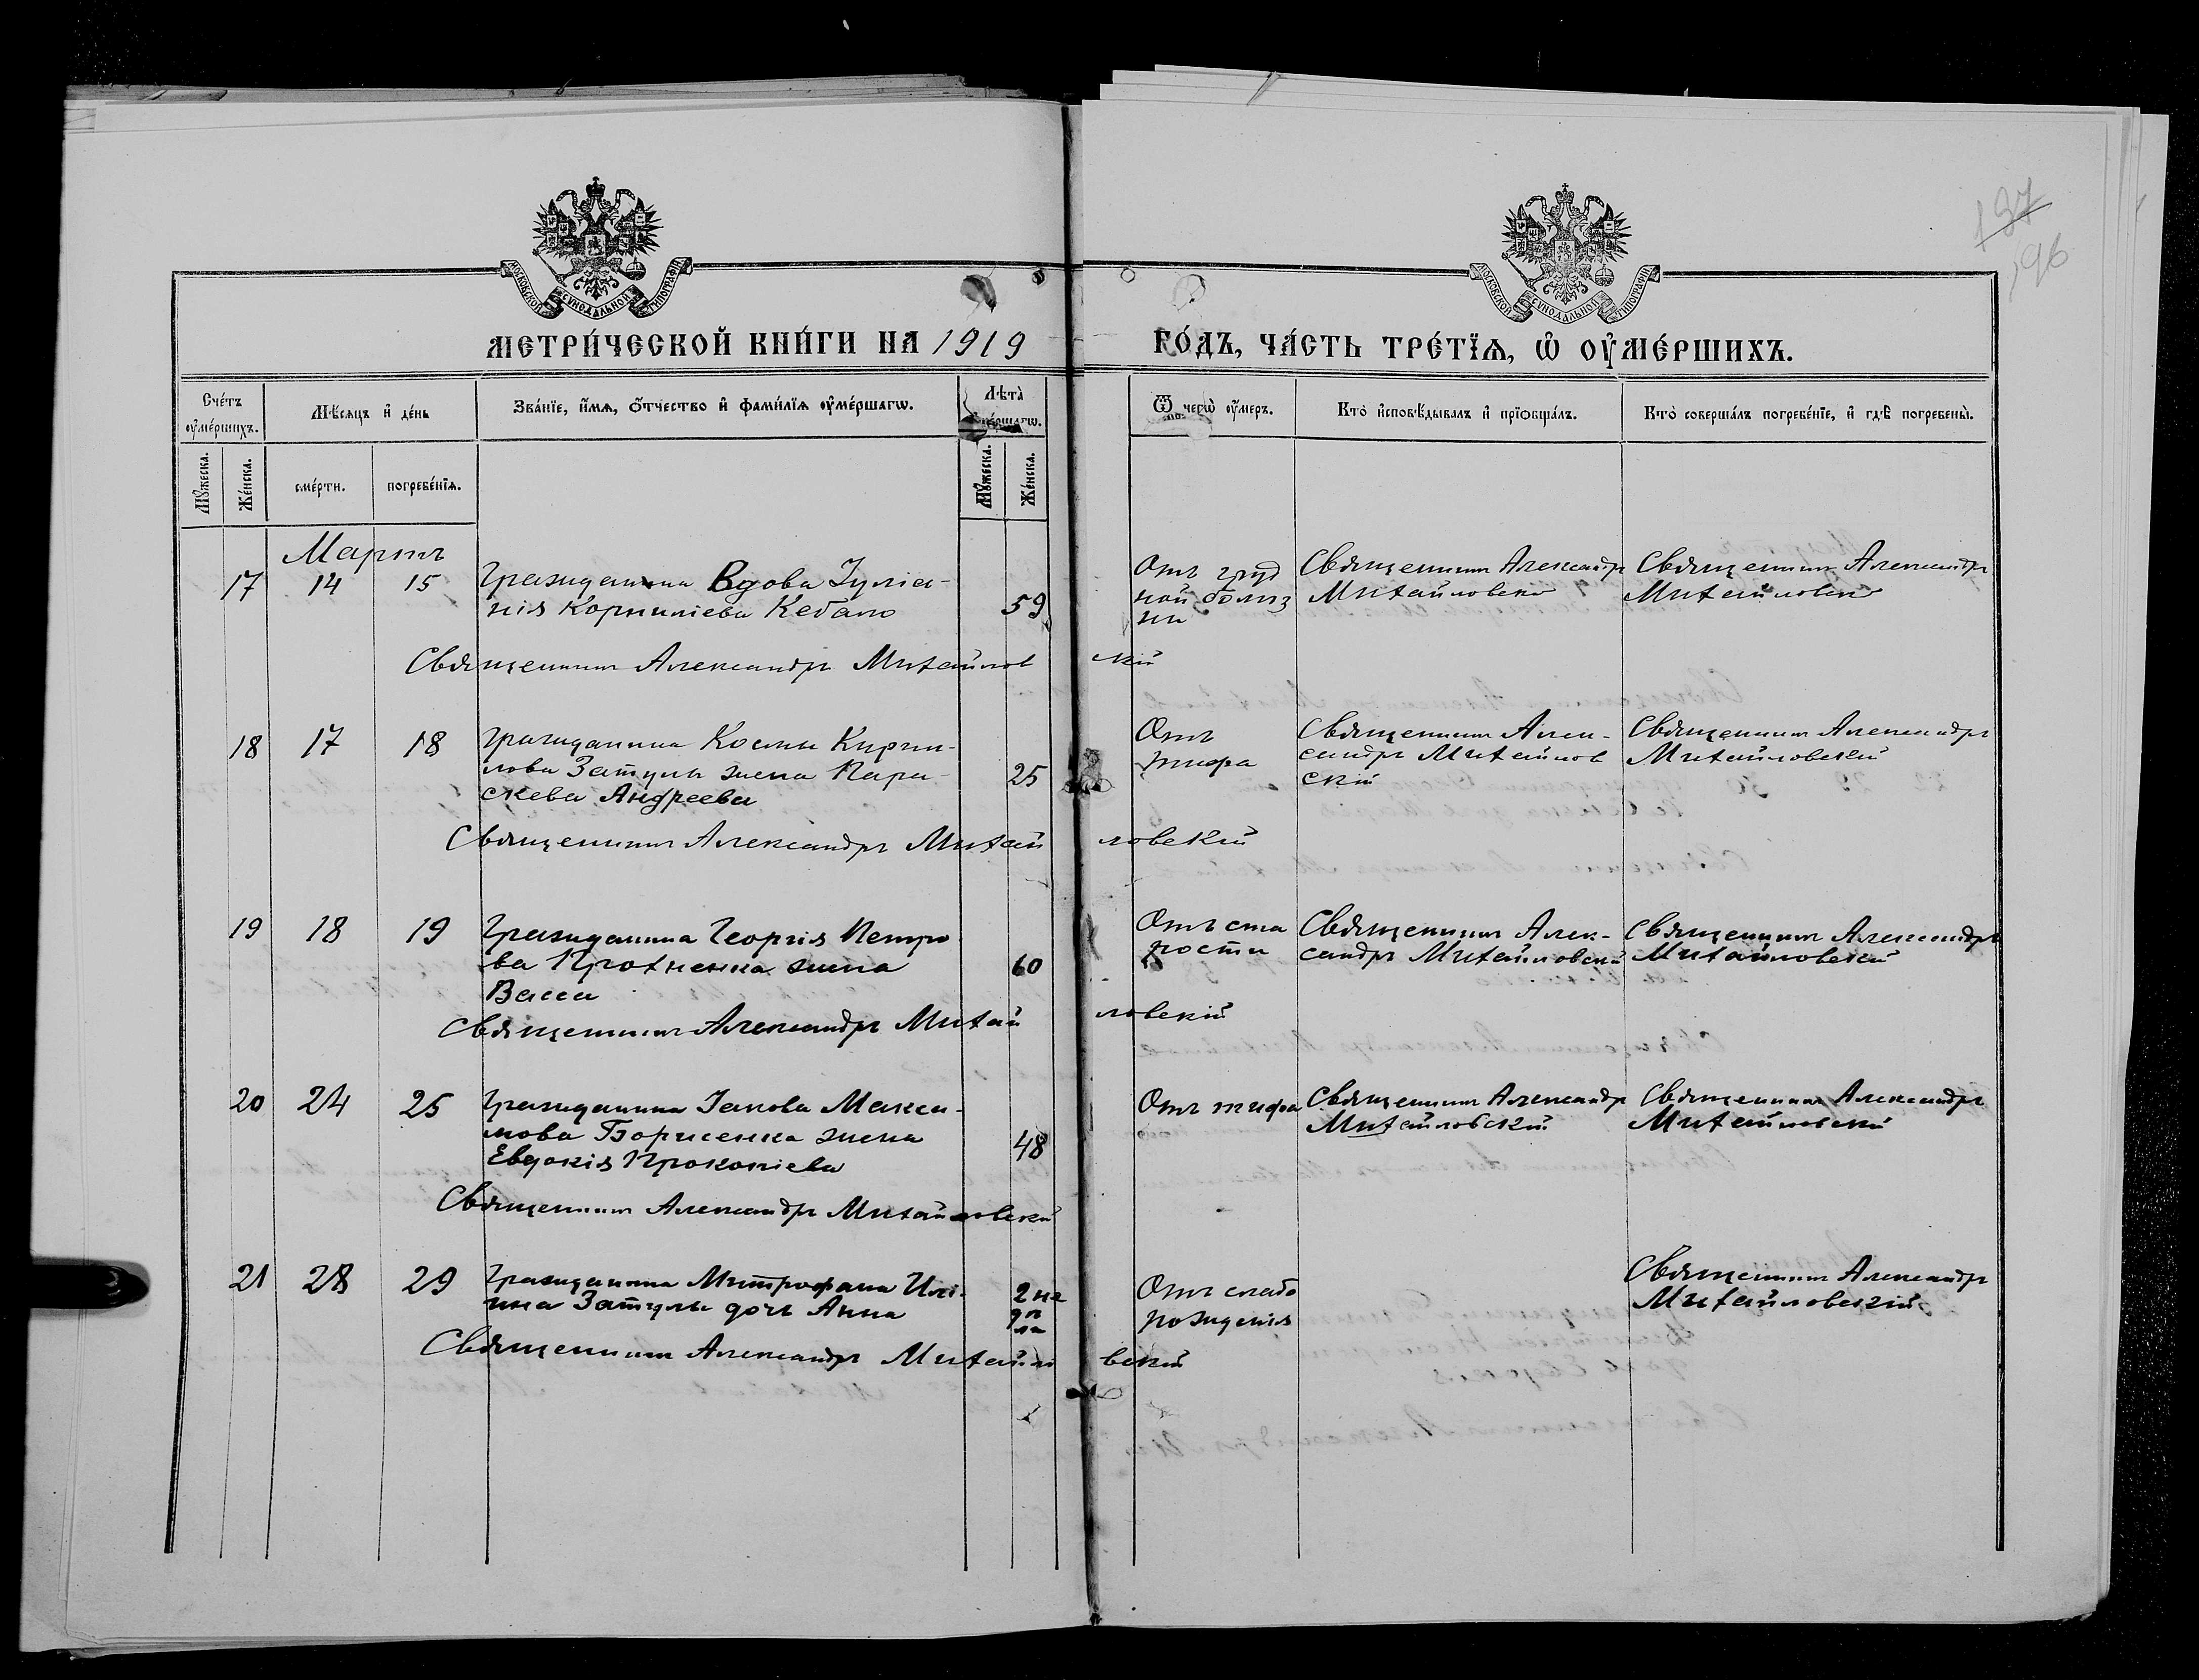 137
196
МОСКОВСКОЙ СѴНОДАЛЬНОЙ ТИПОГРАФІИ
МОСКОВСКОЙ СѴНОДАЛЬНОЙ ТИПОГРАФІИ
МЕТРИ́ЧЕСКОЙ КНИ́ГИ НА 1919 ГО́ДЪ, ЧА́СТЬ ТРЕ́ТЇѦ, Ѡ҆ ОУ҆МЕ́РШИХЪ.
Сче́тъ оу҆ме́ршихъ.
Мѣ́сяцъ и҆ де́нь
Зва́нїе, и҆́мѧ, ѻ҆́тчество и҆ фами́лїѧ оу҆ме́ршагѡ.
Лѣ̑та̀
Ѿ чегѡ̀ оу҆́меръ.
Кто̀ и҆сповѣ́дывалъ и҆ прїѻбща́лъ.
Кто̀ соверша́лъ погребе́нїе, и҆ гдѣ̀ погребены̀.
Мꙋ́жеска.
Же́нска.
сме́рти.
погребе́нїѧ.
Мꙋ́жеска.
Же́нска.
Мартъ
17 14 15 Гражданина Вдова Іуліа-
нія Корниліева Кебало 59
Отъ груд
ной болѣз
ни
Священникъ Александр
Михайловскій
Священникъ Александръ
Михайловскій
Священникъ Александръ Михайловскій
18 17 18 Гражданина Космы Кирил-
лова Затулы жена Пара-
скева Андреева 25
Отъ
тифа
Священникъ Алек-
сандръ Михайлов
скій
Священникъ Александръ
Михайловскій
Священникъ Александръ Михайловскій
19 18 19 Гражданина Георгія Петро
ва Прохненка жена 60
Васса
Отъ ста
рости
Священникъ Алек-
сандръ Михайловскій
Священникъ Александръ
Михайловскій
Священникъ Александръ Михайловскій
20 24 25 Гражданина Іакова Макси-
мова Борисенка жена
Евдокія Прокопіева 48
Отъ тифа
Священникъ Александр
Михайловскій
Священникъ Александръ
Михайловскій
Священникъ Александръ Михайловскій
21 28 29 Гражданина Митрофана Илі-
ина Затулы дочь Анна
2 не
дѣ
ли
Отъ слабо
рожденія
Священникъ Александръ
Михайловскій
Священникъ Александръ Михайловскій